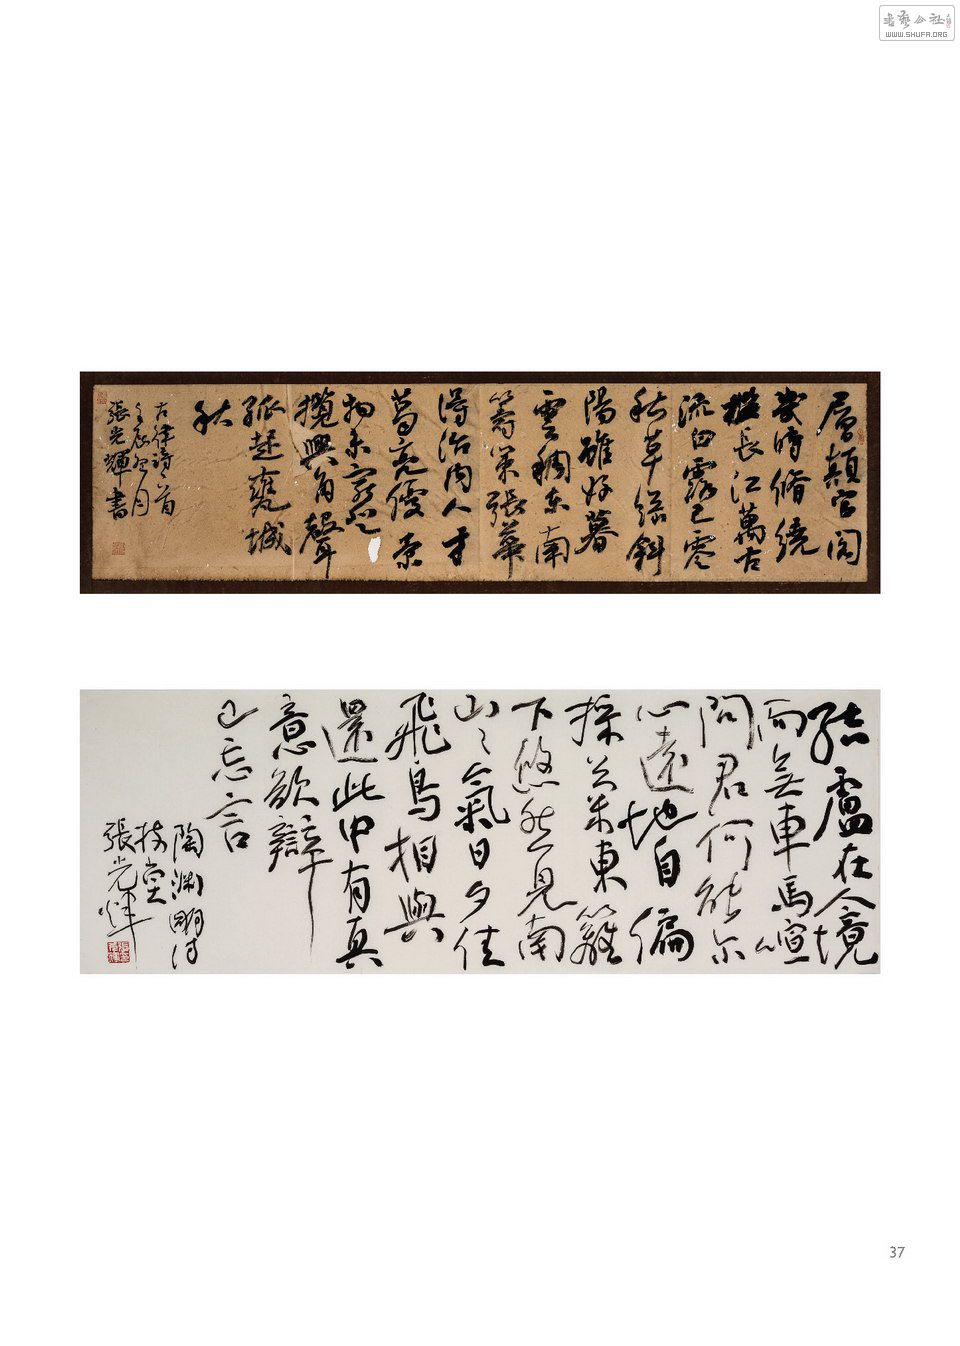 書藝公社
WWW.SHUFA.ORG
層顛官閣
幾時脩繞
檻長江萬古
流白露已零
秋草綠斜
陽雖好暮
雲稠東南
籌策張華
得治內人才
葛亮優景
物未窮登
攬興角聲
孤起甕城
秋
古律詩一首
月
張光輝書
結廬在人境
而無車馬喧
問君何能尔
心遠地自偏
採菊東籬
下悠然見南
山〻氣日夕佳
飛鳥相與
還此中有真
意欲辯
已忘言
陶淵明詩
張光輝
37